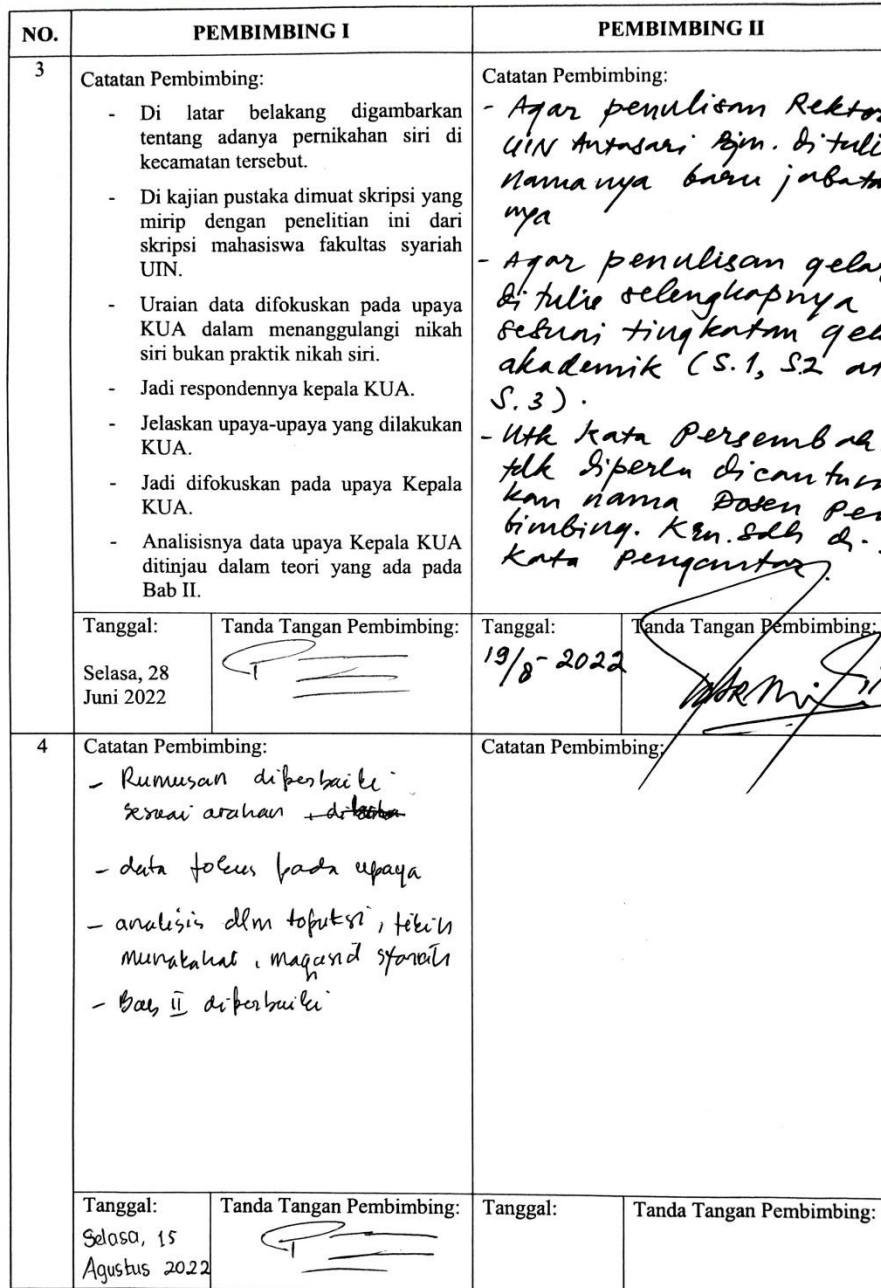 NO.
PEMBIMBING I
PEMBIMBING II
3
Catatan Pembimbing:
- Di latar belakang digambarkan
tentang adanya pernikahan siri di
kecamatan tersebut.
- Di kajian pustaka dimuat skripsi yang
mirip dengan penelitian ini dari
skripsi mahasiswa fakultas syariah
UIN.
- Uraian data difokuskan pada upaya
KUA dalam menanggulangi nikah
siri bukan praktik nikah siri.
- Jadi respondennya kepala KUA.
- Jelaskan upaya-upaya yang dilakukan
KUA.
- Jadi difokuskan pada upaya Kepala
KUA.
- Analisisnya data upaya Kepala KUA
ditinjau dalam teori yang ada pada
Bab II.
Catatan Pembimbing:
- Agar penulisan Rektor
UIN Antasari Bjm. dituli
namanya baru jabata
nya
- Agar penulisan gela
ditulis selengkapnya
sesuai tingkatan gel
akademik (S.1, S2 at
S.3).
- Utk Kata Persembah
tdk diperlu dicantum
kan nama Dosen Pem
bimbing. Krn. sdh di
Kata Pengantar
Tanggal:
Selasa, 28
Juni 2022
Tanda Tangan Pembimbing:
Tanggal:
19/8-2022
Tanda Tangan Pembimbing:
4
Catatan Pembimbing:
- Rumusan diperbaiki
sesuai arahan
- data fokus pada upaya
- analisis dlm topuksi, fikih
munakahat, maqasid syariah
- Bab II diperbaiki
Catatan Pembimbing:
Tanggal:
Selasa, 15
Agustus 2022
Tanda Tangan Pembimbing:
Tanggal:
Tanda Tangan Pembimbing: